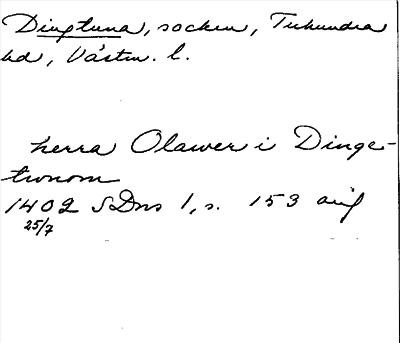 Dingtuna, socken, Tuhundra
hd, Västm. l.
herra Olawer i Dinge-
twnom
1402 SDns 1, s. 153 avs
25/7